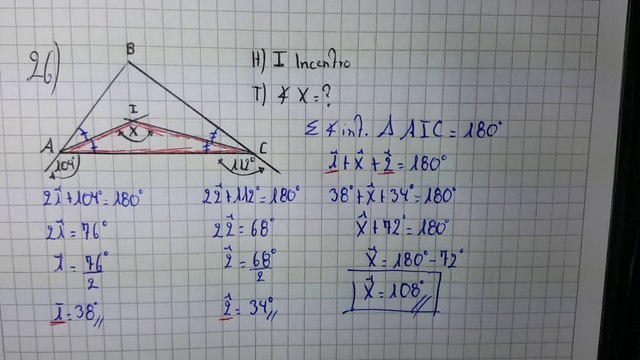 26)
H) I Incentro
T) ∡ X = ?
B
I
X
A
C
104°
112°
Σ ∡ int. Δ AIC = 180°
1̂ + X̂ + 2̂ = 180°
38° + X̂ + 34° = 180°
X̂ + 72° = 180°
X̂ = 180° - 72°
X̂ = 108°
21̂ + 104° = 180°
21̂ = 76°
1̂ = 76°/2
1̂ = 38°
22̂ + 112° = 180°
22̂ = 68°
2̂ = 68°/2
2̂ = 34°